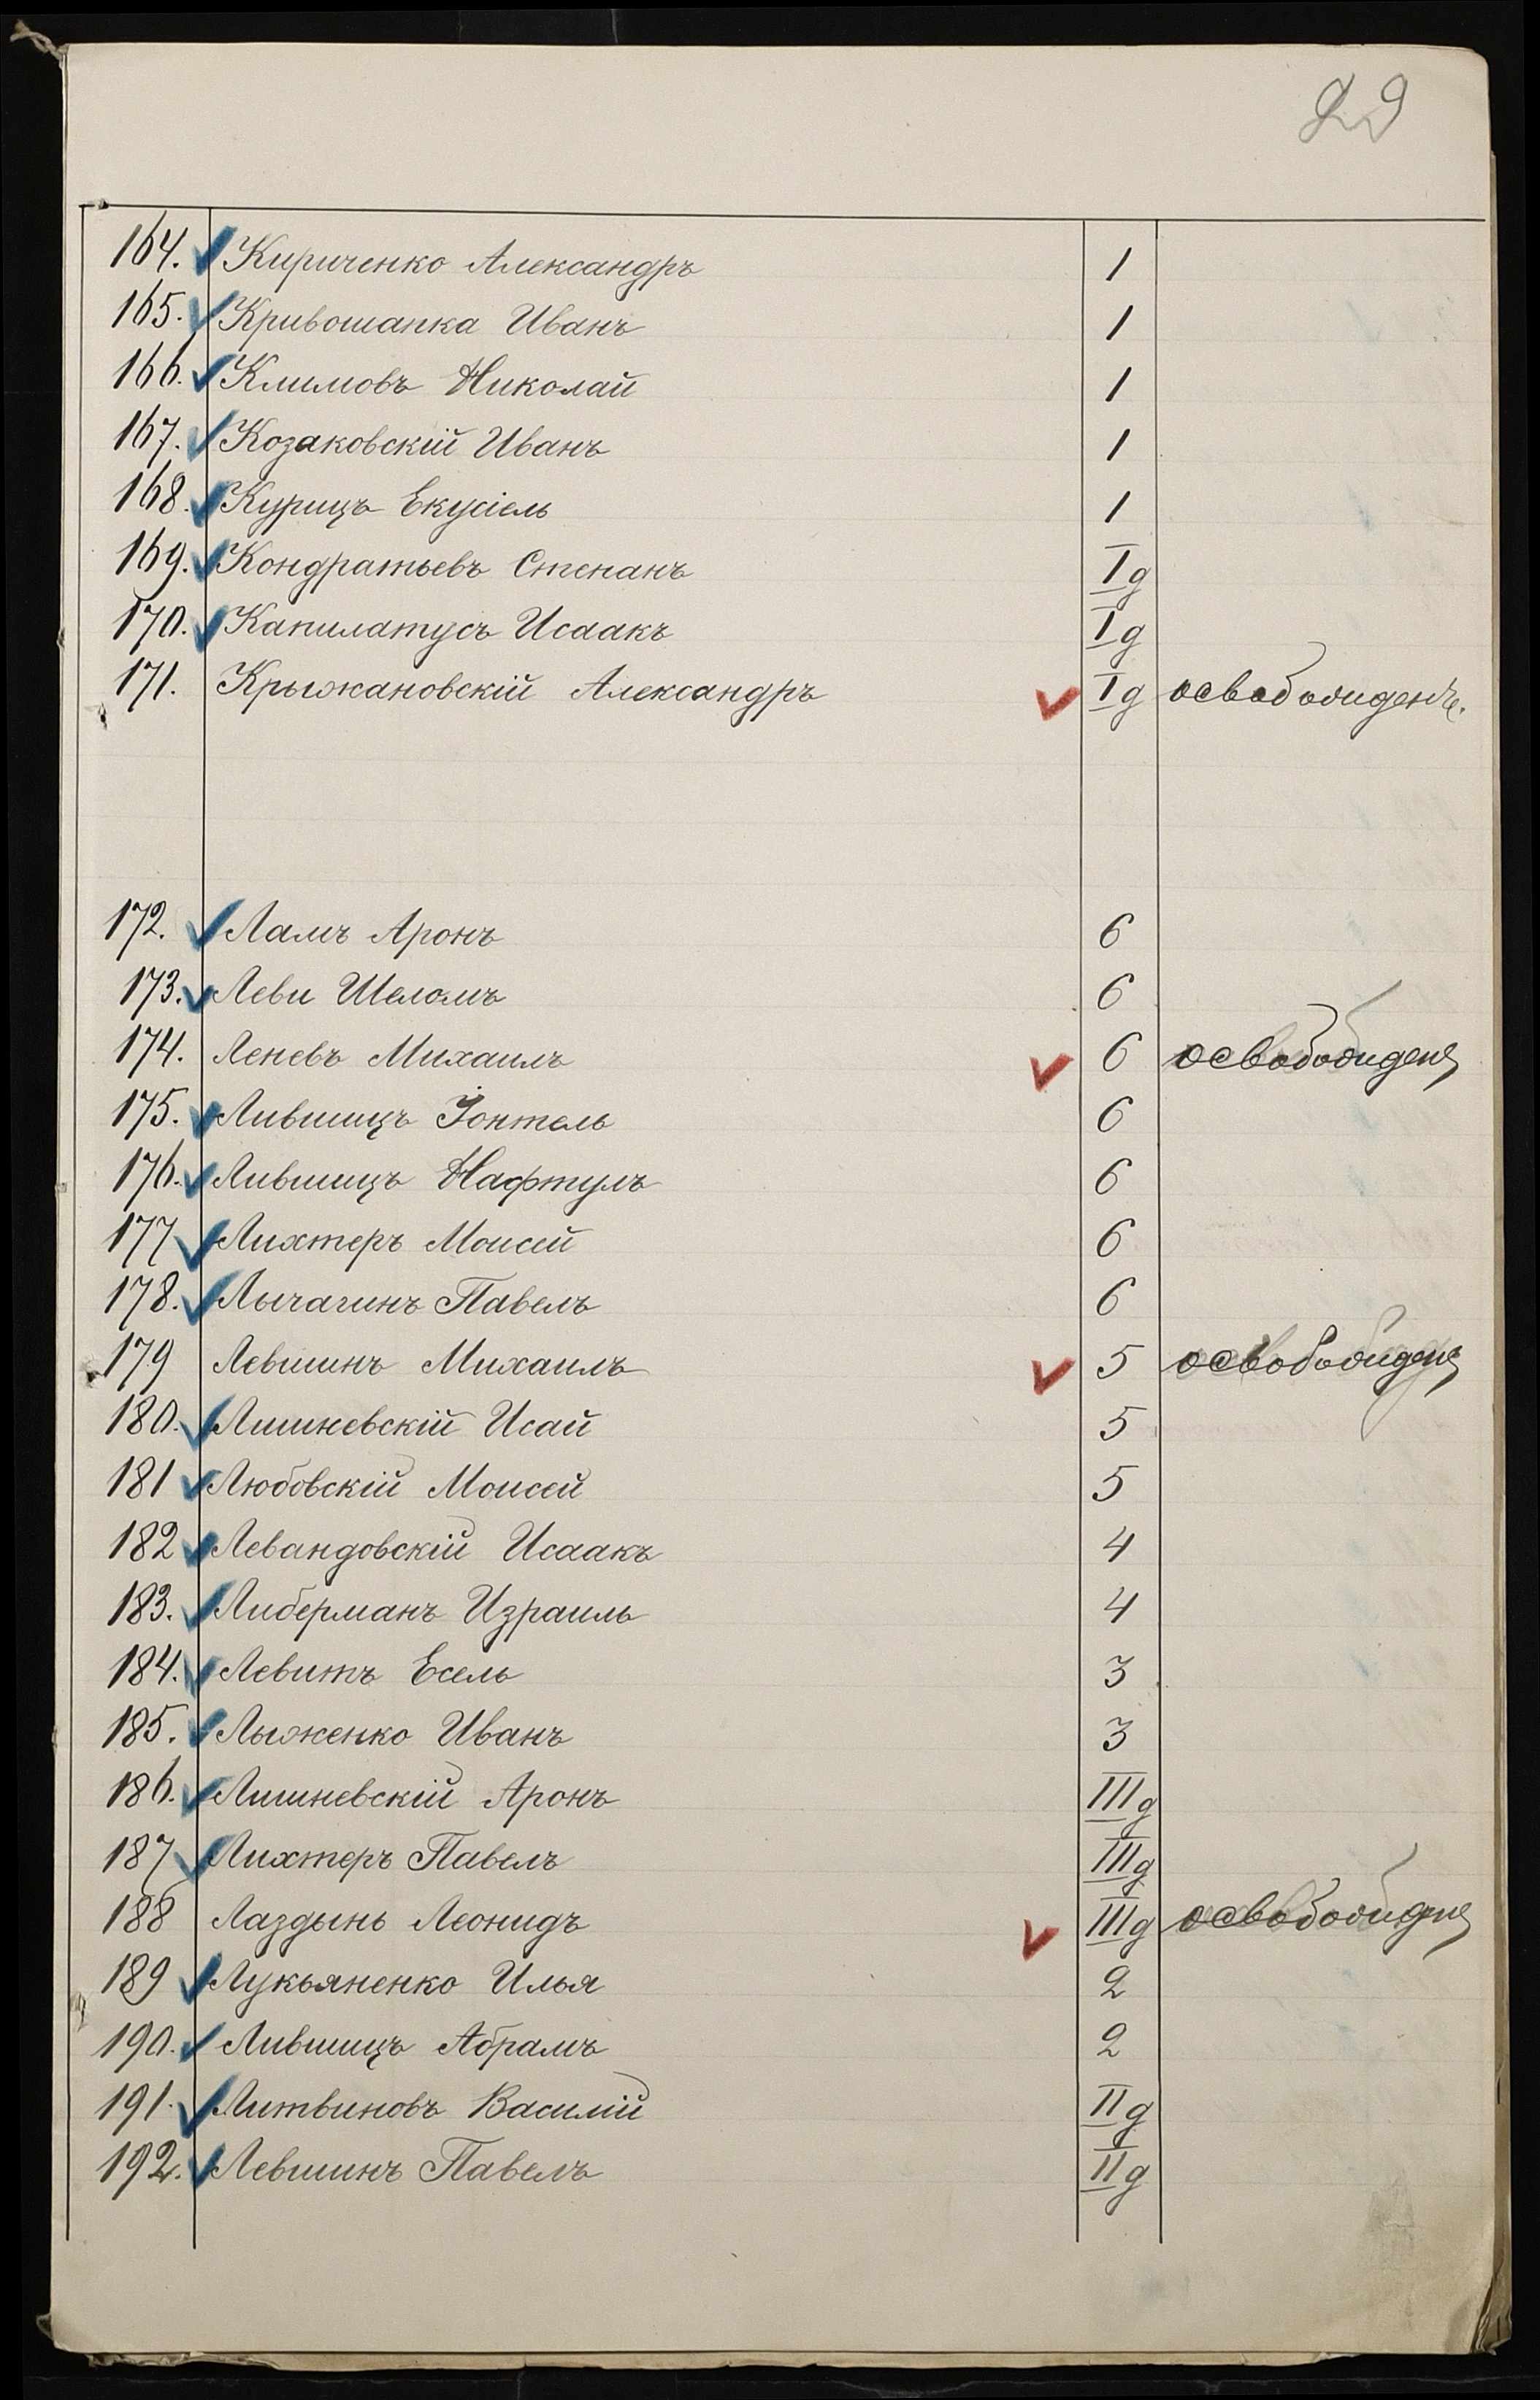 29
164. Кириченко Александръ 1
165. Кривошапка Иванъ 1
166. Климовъ Николай 1
167. Козаковскій Иванъ 1
168. Курицъ Екусіель 1
169. Кондратьевъ Степанъ Iд
170. Капилатусъ Исаакъ Iд
171. Крыжановскій Александръ Iд освобожденъ.
172. Ламъ Аронъ 6
173. Леви Шеломъ 6
174. Леневъ Михаилъ 6 освобожденъ
175. Лившицъ Іонтель 6
176. Лившицъ Нафтулъ 6
177 Лихтеръ Моисей 6
178. Лычагинъ Павелъ 6
179 Левшинъ Михаилъ 5 освобожденъ
180. Лишневскій Исай 5
181 Любовскій Моисей 5
182 Левандовскій Исаакъ 4
183. Либерманъ Израиль 4
184. Левитъ Есель 3
185. Лыженко Иванъ 3
186. Лишневскій Аронъ IIIд
187 Лихтеръ Павелъ IIIд
188 Лаздынь Леонидъ IIIд освобожденъ
189 Лукьяненко Илья 2
190. Лившицъ Абрамъ 2
191. Литвиновъ Василій IIд
192. Левшинъ Павелъ IIд